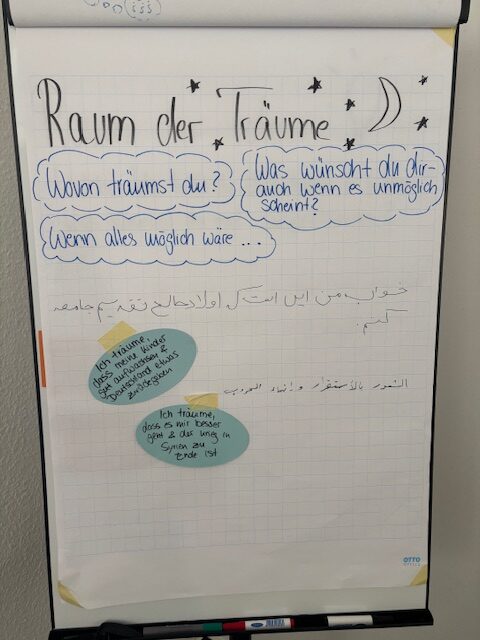 Raum der Träume
Wovon träumst du?
Was wünscht du dir-
auch wenn es unmöglich
scheint?
Wenn alles möglich wäre ...
خواب من این است که اولاد صالح تقدیم جامعه
کنم.
Ich träume,
dass meine Kinder
gut aufwachsen &
Deutschland etwas
zurückgeben
الشعور بالأستقرار و انهاء الحروب
Ich träume,
dass es mir besser
geht & der Krieg in
Syrien zu
Ende ist
OTTO
OFFICE